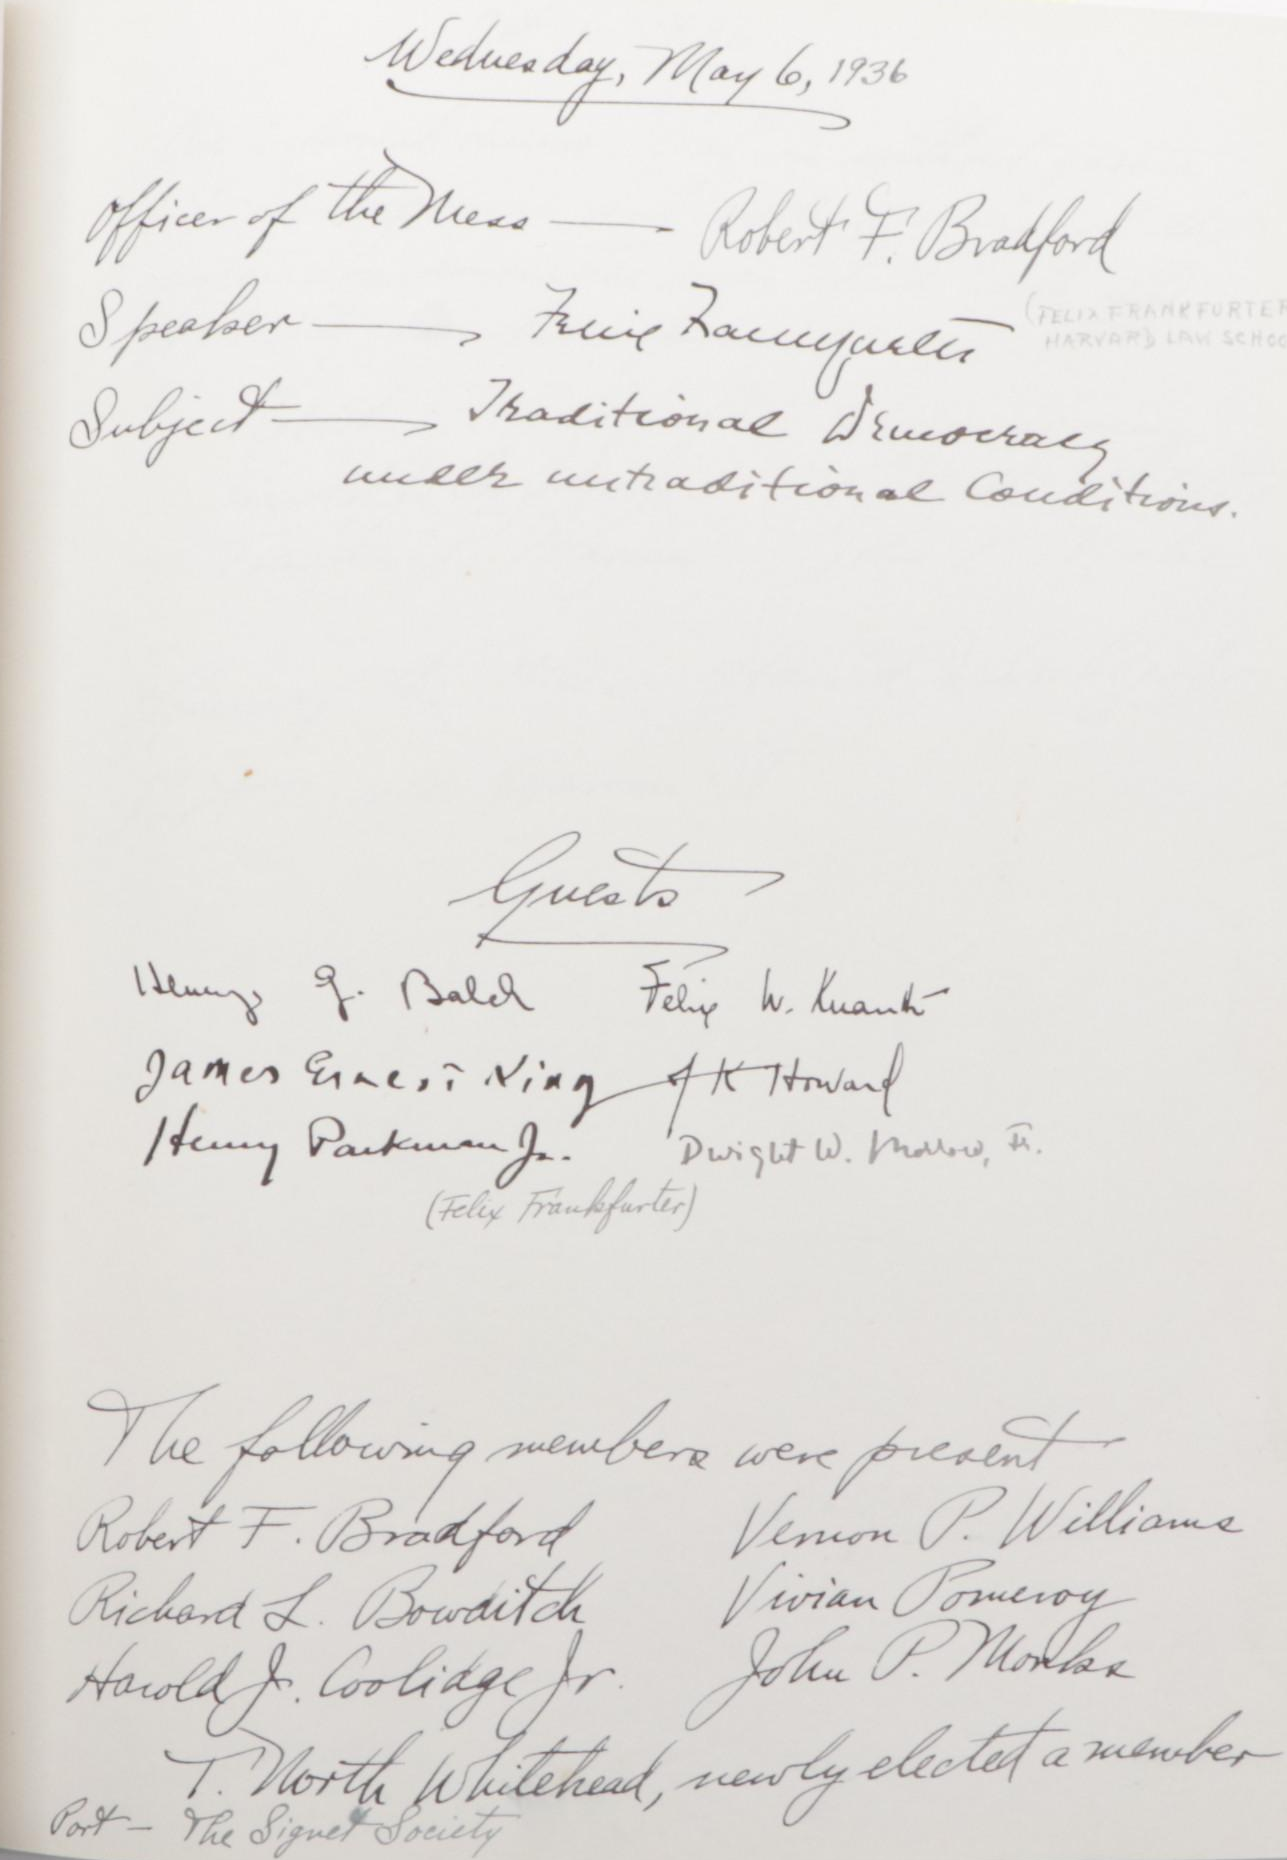 Wednesday, May 6, 1936
Officer of the Mess — Robert F. Bradford
Speaker — Felix Frankfurter
(FELIX FRANKFURTER
HARVARD LAW SCHOO
Subject — Traditional Democracy
under untraditional Conditions.
Guests
Henry G. Balch Felix W. Knauth
James Ernest King J K Howard
Henry Parkman Jr. Dwight W. Morrow, Jr.
(Felix Frankfurter)
The following members were present
Robert F. Bradford Vernon P. Williams
Richard L. Bowditch Vivian Pomeroy
Harold J. Coolidge Jr. John P. Monks
T. North Whitehead, newly elected a member
Port — The Signet Society